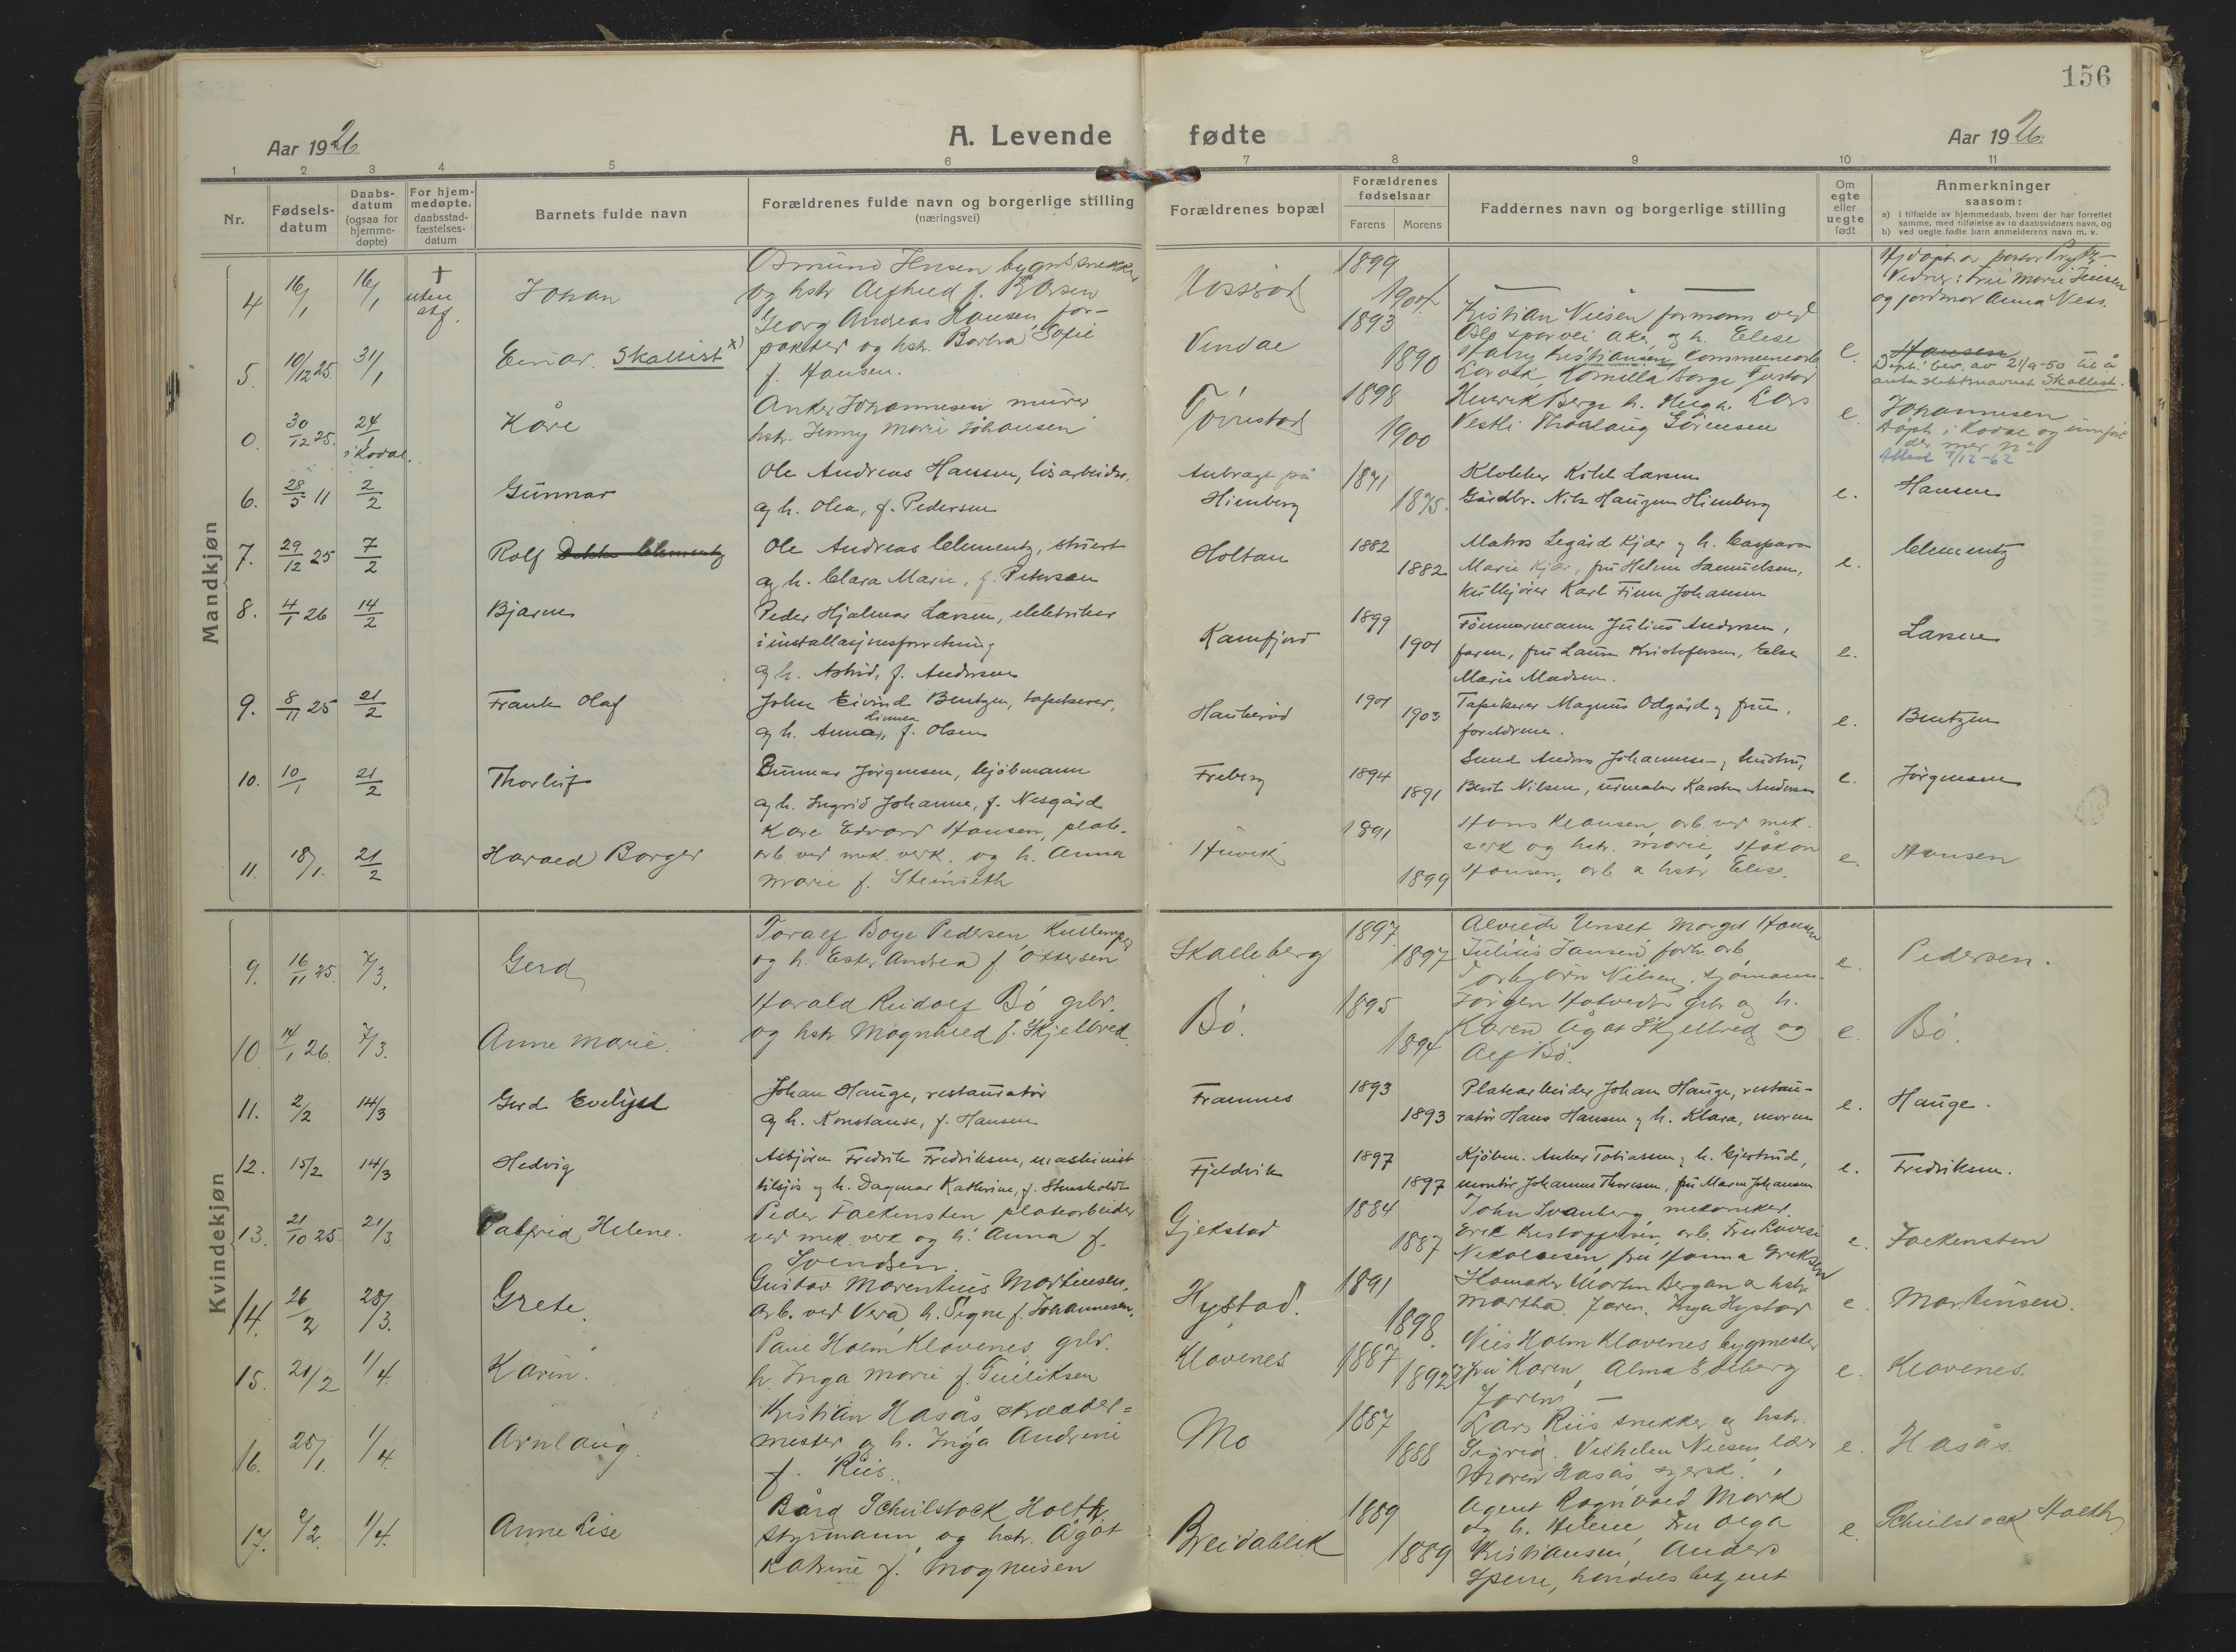 156
Aar 1926
A. Levende fødte
Aar 1926.
1 2 3 4 5 6 7 8 9 10 11
Nr.
Fødsels-
datum
Daabs-
datum
(ogsaa for
hjemme-
døpte)
For hjem-
medøpte,
daabsstad-
fæstelses-
datum
Barnets fulde navn
Forældrenes fulde navn og borgerlige stilling
(næringsvei)
Forældrenes bopæl
Forældrenes
fødselsaar
Farens Morens
Faddernes navn og borgerlige stilling
Om
egte
eller
uegte
født
Anmerkninger
saasom:
a) i tilfælde av hjemmedaab, hvem der har forrettet
samme, med tilføielse av to daabsvidners navn, og
b) ved uegte fødte barn anmelderens navn m. v.
Mandkjøn
4 16/1 16/1 † uten stf.
Johan
Osmund Jensen bygn.snekker
og hstr Alfhild f. Larsen
1899
1904
Vidner: Fru Marie Jensen
og jordmor Anna Ness.
5. 10/12 25. 31/1
Einar. Skallist x)
Georg Andreas Hansen for-
pakter og hstr. Borbra Sofie
f. Hansen.
Vindal
1893
1890
Kristian Nilsen formann ved
Oslo sporvei Aker og h. Elise
e.
Hansen
Døpt. bev. av 21/9-50 til å
anta slektsnavnet Skallist.
0. 30/12 25. 24/1 i Kodal.
Kåre
Anker Johannesen murer
hstr. Jenny Marie Johansen
Torrestad
1898
1900
Henrik Berge h. Helga. Lars
Vestli Thoralaug Sörensen
e.
Johannesen
Döpt i Kodal og innført
der
Attest 7/12-62
6. 28/5 11 2/2
Gunnar
Ole Andreas Hansen, lösarbeider,
og h. Olea, f. Pedersen
Anbragt på
Himberg
1871
1875.
Klokker Kihl Larsen
Gårdbr. Nils Haugen Himberg
e.
Hansen
7. 29/12 25 7/2
Rolf
Ole Andreas Clementz, stuert
og h. Clara Marie, f. Petersen
Holtan
1882
1882
Matros Legård Kjær og h. Caspara
Marie Kjær, fru Helene Samuelsen,
Karl Finn Johansen
e.
Clementz
8. 4/1 26 14/2
Bjarne
Peder Hjalmar Larsen, elektriker
i installasjonsforretning
og h. Astrid, f. Andersen
Kamfjord
1899
1901
Tömmermann Julius Andersen,
faren, fru Laura Kristofersen, Else
Marie Madsen.
e.
Larsen
9. 8/11 25 21/2
Frank Olaf
John Eivind Bentzen, tapetserer,
og h. Anna Linnea, f. Olsen
Haukeröd
1901
1903
Tapetserer Magnus Odgård og frue,
foreldrene.
e.
Bentzen
10. 10/1 21/2
Thorleif
Gunnar Jörgensen, kjöbmann
og h. Ingrid Johanne, f. Nesgård
Freberg
1894
1891
Berit Nilsen, urmaker Karsten Andersen
e.
Jörgensen
11. 18/1. 21/2
Harald Borger
Kare Edvard Hansen, plate-
arb. ved mek. verk. og h. Anna
Marie f. Steinseth
Huvik
1891
1899
Hans Klausen, arb. ved mek.
verk og hstr. Marie, Håkon
Hansen, arb. & hstr Elise.
e.
Hansen
Kvindekjøn
9. 16/11 25. 7/3.
Gerd
Toralf Boye Pedersen, Kullemper
og h. Estr. Andrea f. Ottersen
Skalleberg
1897
1897
Alvilde Unset Margit Hansen
Julius Jansen forh. arb.
Torbjörn Nilsen, sjömann.
e.
Pedersen.
10 14/1 26. 7/3.
Anne Marie.
Harald Rudolf Bö gbr.
og hstr Magnhild f. Skjelbred.
Bö.
1895
1894
Jörgen Hotvedt gbr og h.
Karen Ågot Skjelbred og
Alf Bö.
e.
Bö.
11. 2/2 14/3
Gerd Evelyn
Johan Hauge, restauratör
og h. Konstanse, f. Hansen
Framnes
1893
1893
Platearbeider Johan Hauge, restau-
ratör Hans Hansen og h. Klara, moren
e.
Hauge.
12. 15/2 14/3
Hedvig
Asbjörn Fredrik Fredriksen, maskinist
tilsjös og h. Dagmar Kathrine, f. Stensholdt
Fjeldvik
1897
1897
Kjöbm. Anker Tobiassen og h. Gjertrud,
montör Johannes Thoresen, fru Maren Johansen
e.
Fredriksen.
13. 21/10 25. 21/3
Palfrid Helene.
Peder Falkensten platearbeider
ved mek. verk og h. Anna f.
Svendsen.
Gjekstad
1884
1887
John Svanberg mekaniker.
Erik Kristoffersen, arb. Fru Lovise
Nikolaisen, fru Hanna Eriksen
e.
Falkensten
14. 26/2 28/3.
Grete.
Gustav Marentius Martinsen,
arb. ved Vera, h. Signe f. Johannesen.
Hystad.
1891
1898.
Martin Bergan & hstr.
Martha. Faren. Inga Hystad
e.
Martinsen.
15. 21/2 1/4.
Karin.
Paul Holm Klavenes, gbr.
h. Inga Marie f. Tuliksen
Klavenes
1887
1892
Nils Holm Klavenes bygmester
fru Karen, Alma Solberg
Faren —
e.
Klavenes.
16. 25/1. 1/4.
Arnlaug.
Kristian Hasås, skredder-
mester og h. Inga Andrine
f. Riis.
Mo
1887
1888
Lars Riis snekker og hstr.
Sigrid. Vilhelm Nilsen,
Maren Hasås,
e.
Hasås.
17. 9/2. 1/4.
Anne Lise
Bård Schulstock Holth,
styrmann, og hstr. Ågot
Katrine f. Magnusen
Breidablik
1889
1889
Agent Ragnvald Mork
og h. Helene Fru Olga
Kristiansen, Anders
Sperre, handelsbetjent
e.
Schulstock Holth